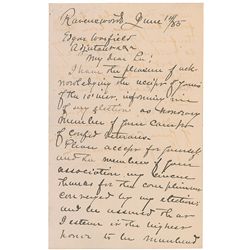 Ravenswood, June 19/85
Edgar Warfield
Adjutant
My dear Sir:
I have the pleasure of ack
nowledging the receipt of yours
of the 10 inst, informing me
of my election as Honorary
Member of your Camp
of Confed Veterans.
Please accept for yourself
and the members of your
association my sincere
thanks for the compliment
conveyed by my election,
and be assured that
I esteem it the highest
honor to be numbered